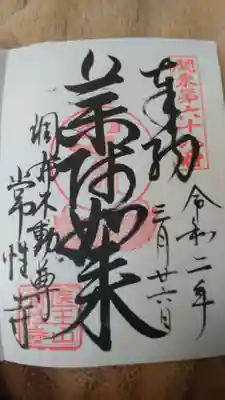 関東第六十四番
奉拝
令和二年
三月廿六日
薬師如来
調布不動尊
常性寺
医王山